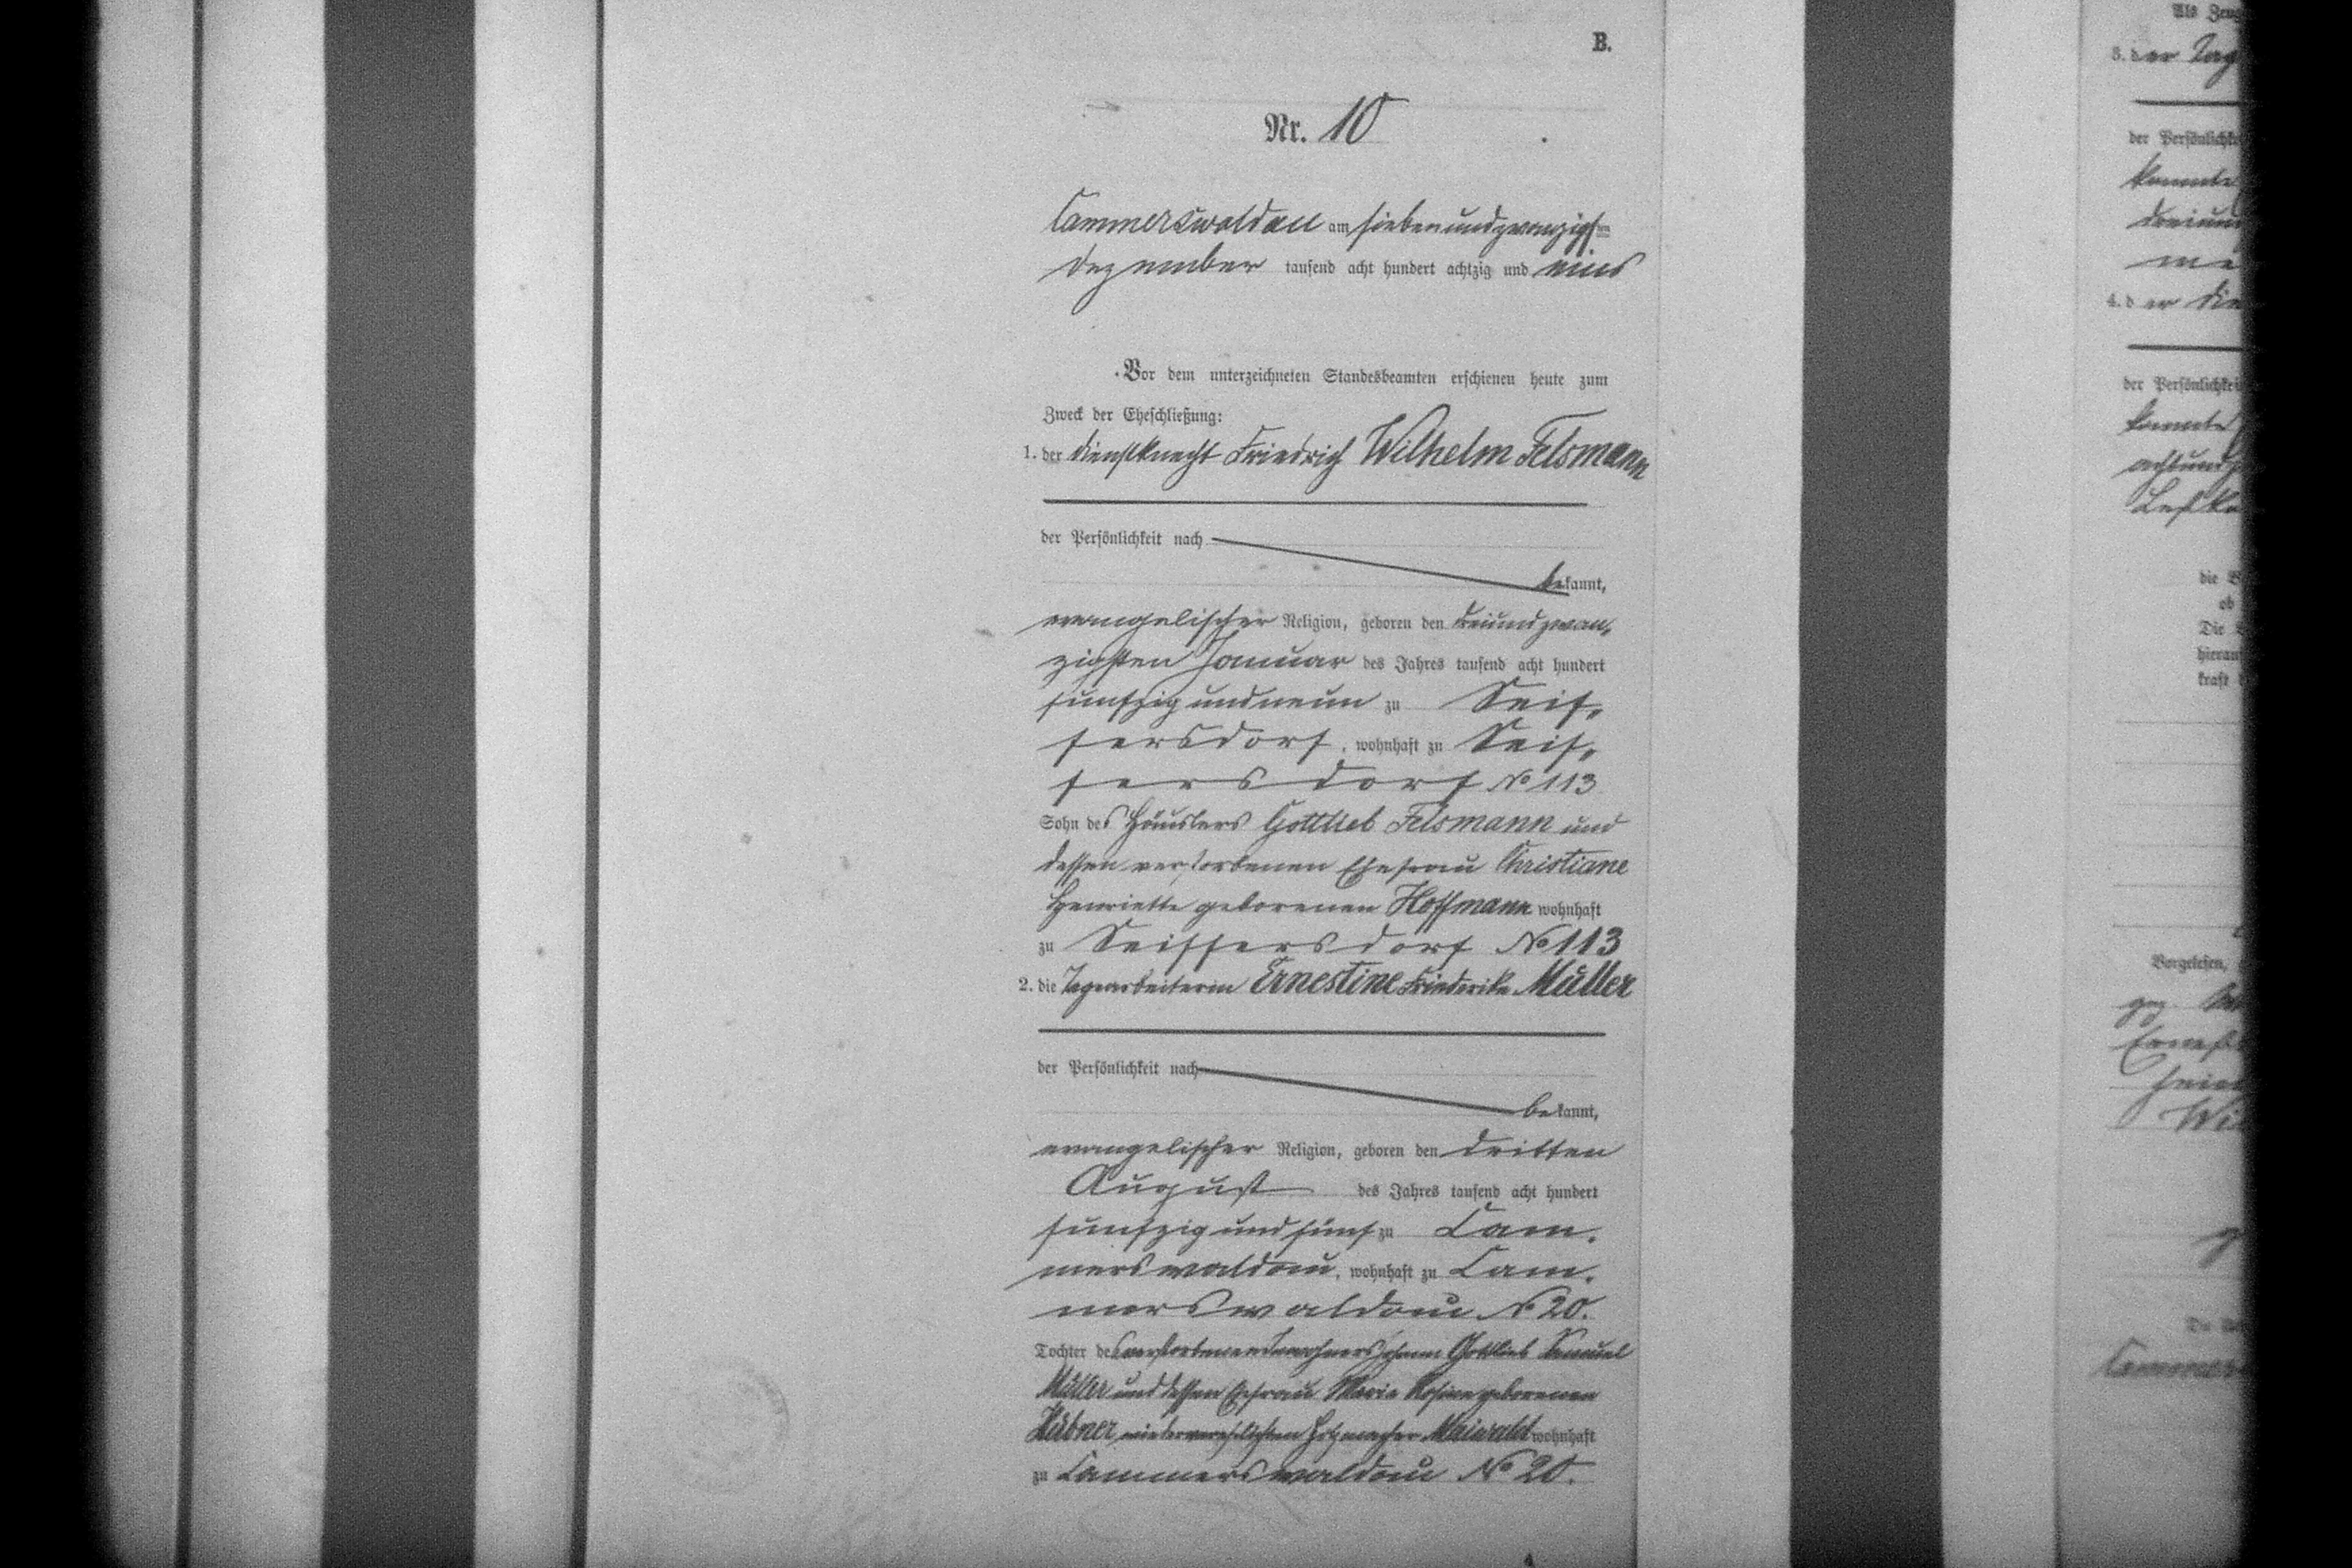 B.
Nr. 10
Cammerswaldau am siebenundzwanzigsten
Dezember tausend acht hundert achtzig und eins
Vor dem unterzeichneten Standesbeamten erschienen heute zum
Zweck der Eheschließung:
1. der Dienstknecht Friedrich Wilhelm Felsmann
der Persönlichkeit nach
bekannt,
evangelischer Religion, geboren den dreiundzwan-
zigsten Januar des Jahres tausend acht hundert
funfzig und neun zu Seif-
fersdorf, wohnhaft zu Seif-
fersdorf No 113
Sohn des Häuslers Gottlieb Felsmann und
dessen verstorbenen Ehefrau Christiane
Henriette geborenen Hoffmann wohnhaft
zu Seiffersdorf No 113
2. die Tagearbeiterin Ernestine Friederike Müller
der Persönlichkeit nach
bekannt,
evangelischer Religion, geboren den dritten
August des Jahres tausend acht hundert
funfzig und fünf zu Cam-
merswaldau, wohnhaft zu Cam-
merswaldau No 20.
Tochter des verstorbenen Inwohners Johann Gottlieb Samuel
Müller und dessen Ehefrau Marie Rosine geborenen
Hübner wiederverehelichten Maiwald wohnhaft
zu Cammerswaldau No 20.
Als
3. der
der
konnte
4. der
der
konnte
die
ob
Die
kraft
Vorgelesen,